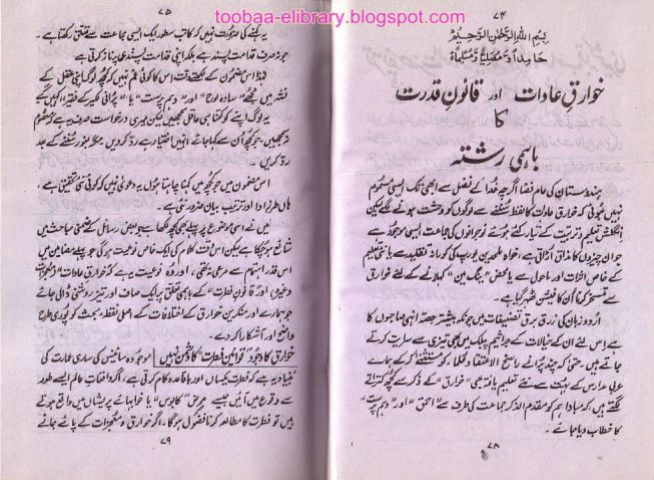 toobaa-elibrary.blogspot.com
۷۴
بِسْمِ اللهِ الرَّحْمٰنِ الرَّحِيْم
حَامِدًا وَّمُصَلِّيًا وَّمُسَلِّمًا
خوارقِ عادات اور قانونِ قدرت
کا
باہمی رشتہ
ہندوستان کی عام فضا اگرچہ خدا کے فضل سے ابھی تک ایسی مسموم
نہیں ہوئی کہ خوارق عادات کا لفظ سُننے سے لوگوں کو وحشت ہونے لگے لیکن
انگلش تعلیم و تربیت کے تیار کئے ہوئے نوجوانوں کی جماعت ایسی موجود ہے
جو ان چیزوں کا مذاق اڑاتی ہے، خواہ ملحدین یورپ کی کورانہ تقلید سے یا نئی تعلیم
کے خاص اثرات اور ماحول سے یا محض "ینگ مین" کہلانے کے لئے خوارق
سے تمسخر کرنا اُن کا فیشن ٹھہر گیا ہے۔
اُردو زبان کی زرق برق تصنیفات میں چونکہ بیشتر حصہ انہی صاحبوں کا
ہے اس لئے ان کے خیالات کے جراثیم پبلک میں بھی تیزی سے سرایت کرتے
جاتے ہیں۔ حتیٰ کہ چند پرانے راسخ الاعتقاد فضلاء کو مستثنےٰ کر کے ہمارے
عربی مدارس کے بہت سے نئے تعلیم یافتہ بھی "خوارق" کے ذکر سے کچھ کترانے
لگتے ہیں کہ مبادا ہم کو مقدم الذکر جماعت کی طرف سے "احمق" اور "وہم پرست"
کا خطاب دیا جائے۔
۷۸
۷۵
یہ کہنے کی ضرورت نہیں کہ کاتب سطور ایک ایسی جماعت سے تعلق رکھتا ہے۔
جو نہ صرف قدامت پسند ہے بلکہ اپنی قدامت پسندی پر ناز کرتی ہے
لہٰذا اس مضمون کے لکھتے وقت اس کا کوئی غم نہیں کہ کچھ لوگ اپنی عقل کے
نشہ میں مجھے "سادہ لوح" اور "وہم پرست" یا "پرانی لکیر کے فقیر" کہیں گے
یہ لوگ اپنے کو کتنا ہی عاقل سمجھیں لیکن میری درخواست صرف یہ ہے کہ معصوم
نہ سمجھیں، جو کچھ اُن سے کہا جائے انہیں اختیار ہے رد کر دیں، مگر بغور سننے کے بعد
رد کریں۔
اس مضمون میں جو کچھ میں کہنا چاہتا ہوں یہ دعویٰ نہیں کہ کوئی نئی تحقیق ہے۔
ہاں طرزِ ادا اور ترتیب بیان ضرور نئی ہے۔
میں نے اسی موضوع پر پہلے بھی کچھ لکھا ہے جو بعض رسائل کے ضمنی مباحث میں
شائع ہو چکا ہے لیکن اس وقت کلام کی ایک خاص نوعیت ہو گی جو پہلے مضامین میں
اس قدر اہتمام سے مرعی نہ تھی، اور وہ نوعیت یہ ہے کہ خوارق عادات (معجزات
وغیرہ) اور قانونِ فطرت کے باہمی تعلق پر ایک صاف اور تیز روشنی ڈالی جائے
جو ہمارے اور منکرین خوارق کے اختلافات کے اصلی نقطہ بحث کو پوری طرح
واضح اور آشکارا کر دے۔
خوارق کا وجود قوانینِ فطرت کا دشمن نہیں موجودہ سائنس کی ساری عمارت کی
بنیاد یہ ہے کہ فطرت یکساں اور باقاعدہ کام کرتی ہے، اگر واقعاتِ عالم ایسے طور
سے وقوع میں آئیں جیسے مرض کابوس یا خوابہائے پریشاں میں واقع ہوتے
ہیں تو فطرت کا مطالعہ کرنا فضول ہو گا، اگر خوارق و معجزات کے پائے جانے
۷۹